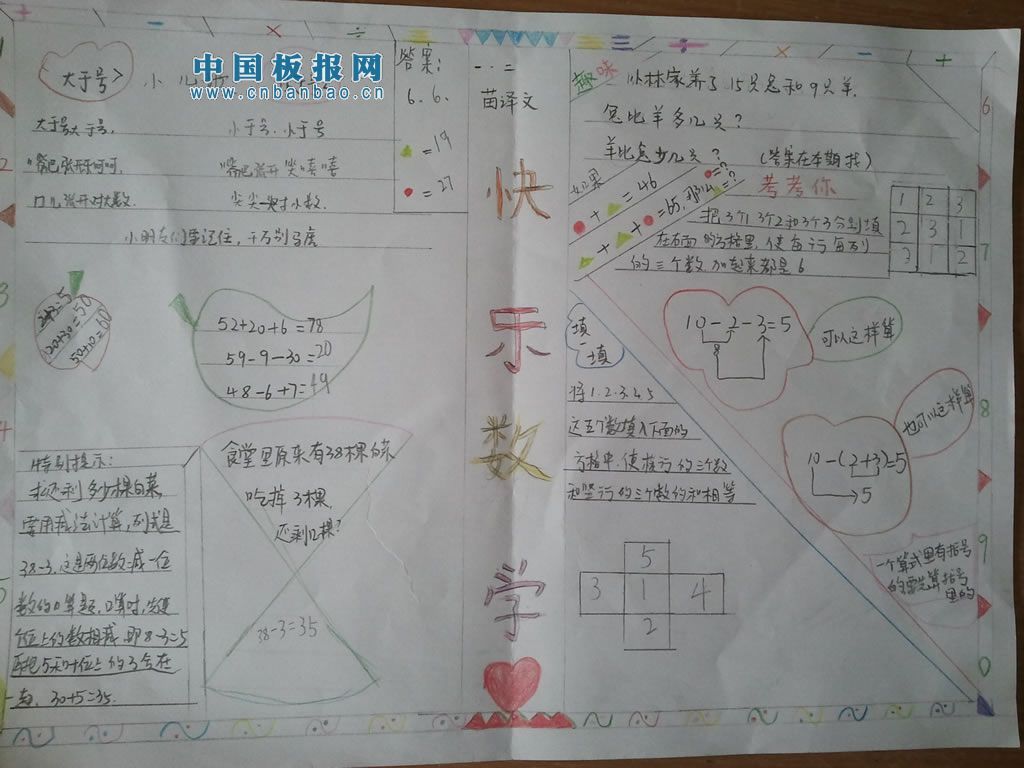 中国板报网
www.cnbanbao.cn
大于号>
小儿
大于号大于号,
小于号,小于号
嘴巴张开呵呵呵,
嘴巴张开笑嘻嘻
口儿张开对大数,
尖尖一头对小数,
小朋友们要记住,千万别马虎
答案:
6.6.
=19
=27
20+30=50
52+20+6=78
59-9-30=20
48-6+7=49
特别提示:
求还剩多少棵白菜
需用减法计算,列式是
38-3,这是两位数减一位
数的口算题,口算时,先把
位上的数相减,即8-3=5
再把5和十位上的3合在
一起,30+5=35.
食堂里原来有38棵白菜
吃掉3棵,
还剩几棵?
38-3=35
一·二
苗译文
快
乐
数
学
趣味
小林家养了15只兔和9只羊,
兔比羊多几只?
羊比兔少几只?
(答案在本期找)
如果
+ =46
+ + =65,那么 =?
=?
考考你
把3个1 3个2和3个3分别填
在右面的方格里,使每行每列
的三个数加起来都是6
1 2 3
2 3 1
3 1 2
填一填
将1.2.3.4.5
这五个数填入下面的
方格中,使横行的三个数
和竖行的三个数的和相等
5
3 1 4
2
10-2-3=5
8
可以这样算
10-(2+3)=5
5
也可以这样算
一个算式里有括号
的要先算括号
里的
6
7
8
9
0